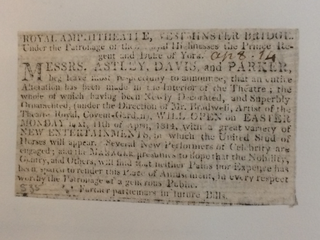 ROYAL AMPHITHEATRE, WESTMINSTER BRIDGE.
Under the Patronage of their Royal Highnesses the Prince Re-
gent and Duke of York. Ap 8. 14
MESSRS. ASTLEY, DAVIS, and PARKER,
beg leave most respectfully to announce, that an entire
Alteration has been made in the Interior of the Theatre; the
whole of which having been Newly Decorated, and Superbly
Ornamented, (under the Direction of Mr. Bradwell, Artist of the
Theatre Royal, Covent Garden), WILL OPEN on EASTER
MONDAY next, 11th of April, 1814, with a great variety of
NEW ENTERTAINMENTS, in which the United Stud of
Horses will appear. Several New Performers of Celebrity are
engaged; and the MANAGER presumes to hope that the Nobility,
Gentry, and Others, will find that neither Pains nor Expense has
been spared to render this Place of Amusement, in every respect
worthy the Patronage of a generous Public.
Further particulars in future Bills.